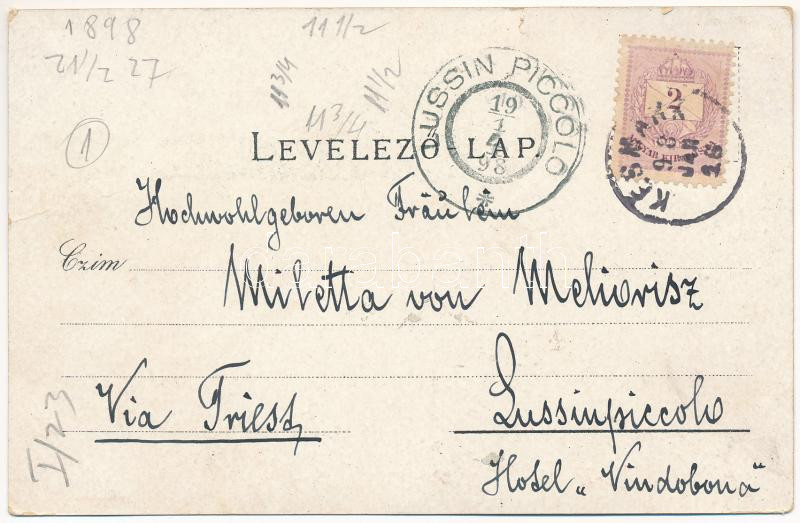 1898
11 1/2
21/2 27
11 3/4
11 3/4
11 1/2
1
LUSSIN PICCOLO
19
1
98
2
MAGYAR KIR. POSTA
KÉSMÁRK
98
JAN
LEVELEZŐ-LAP.
Hochwohlgeboren Fräulein
Czim
Miletta von Meliorisz
Via Triest
Lussinpiccolo
Hotel „Vindobona"
I/23